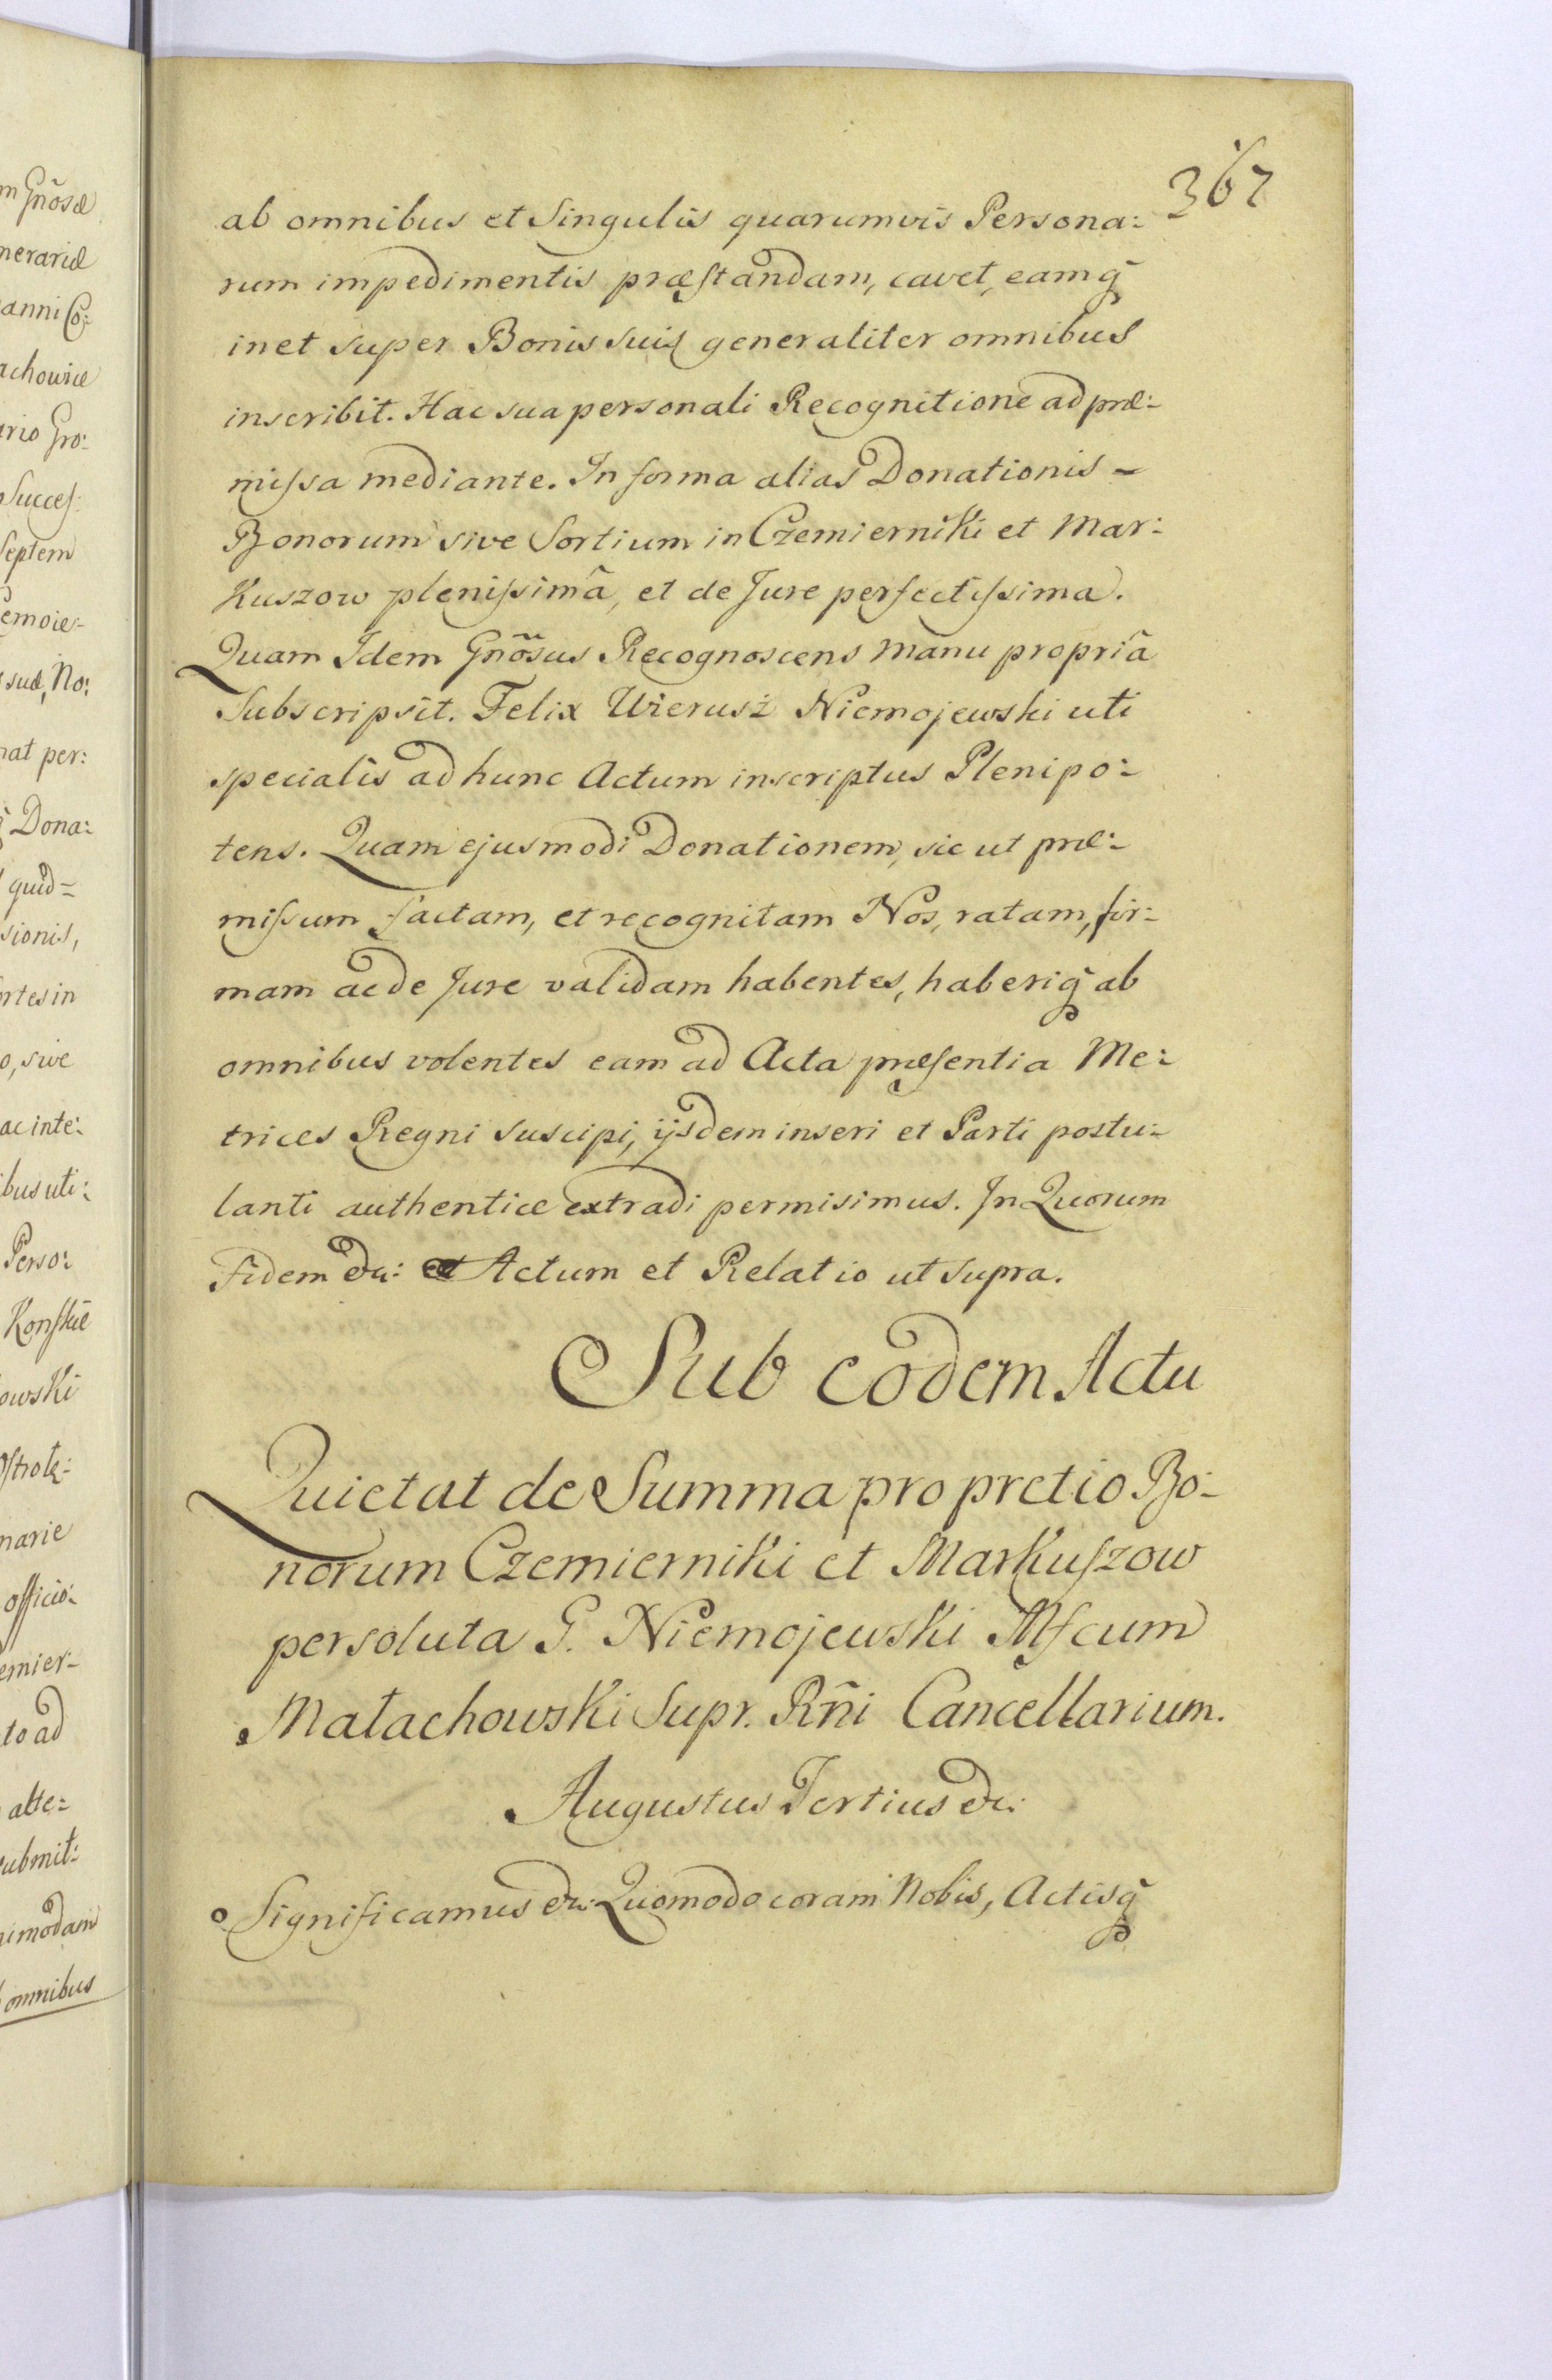 367
ab omnibus et Singulis quarumvis Persona:
rum impedimentis præstandam, cavet, eamq̃
inet super Bonis suis generaliter omnibus
inscribit. Hac sua personali Recognitione ad præ:
missa mediante. In forma alias Donationis -
Bonorum sive Sortium in Czemierniki et Mar:
Kuszow plenissimâ, et de Jure perfectissima.
Quam Idem Gnõsus Recognoscens Manu propriâ
Subscripsit. Felix Wierusz Niemojewski uti
specialis ad hunc Actum inscriptus Plenipo:
tens. Quam ejusmodi Donationem, sic ut præ:
missum factam, et recognitam Nos, ratam, fir:
mam ac de Jure validam habentes, haberiq̃ ab
omnibus volentes eam ad Acta præsentia Me:
trices Regni suscipi, ijsdem inseri et Parti postu:
lanti authentice extradi permisimus. In Quorum
Fidem &c: Actum et Relatio ut supra.
Sub eodem Actu
Quietat de Summa pro pretio Bo:
norum Czemierniki et Markuszow
persoluta G. Niemojewski Mfcum
Małachowski Supr. Rñi Cancellarium.
Augustus Tertius &c:
Significamus &c: Quomodo coram Nobis, Actisq̃
m Gnõsæ
nerariæ
anni Co:
achowice
ario Gro:
Succes:
Septem
emoie-
suæ, No:
nat per:
Dona:
quid=
sionis,
ortes in
o, sive
ac inte:
ibus uti:
Perso:
Konskie
owski
ostrołę:
narie
officio:
emier-
to ad
atte:
submit:
nimodam
omnibus